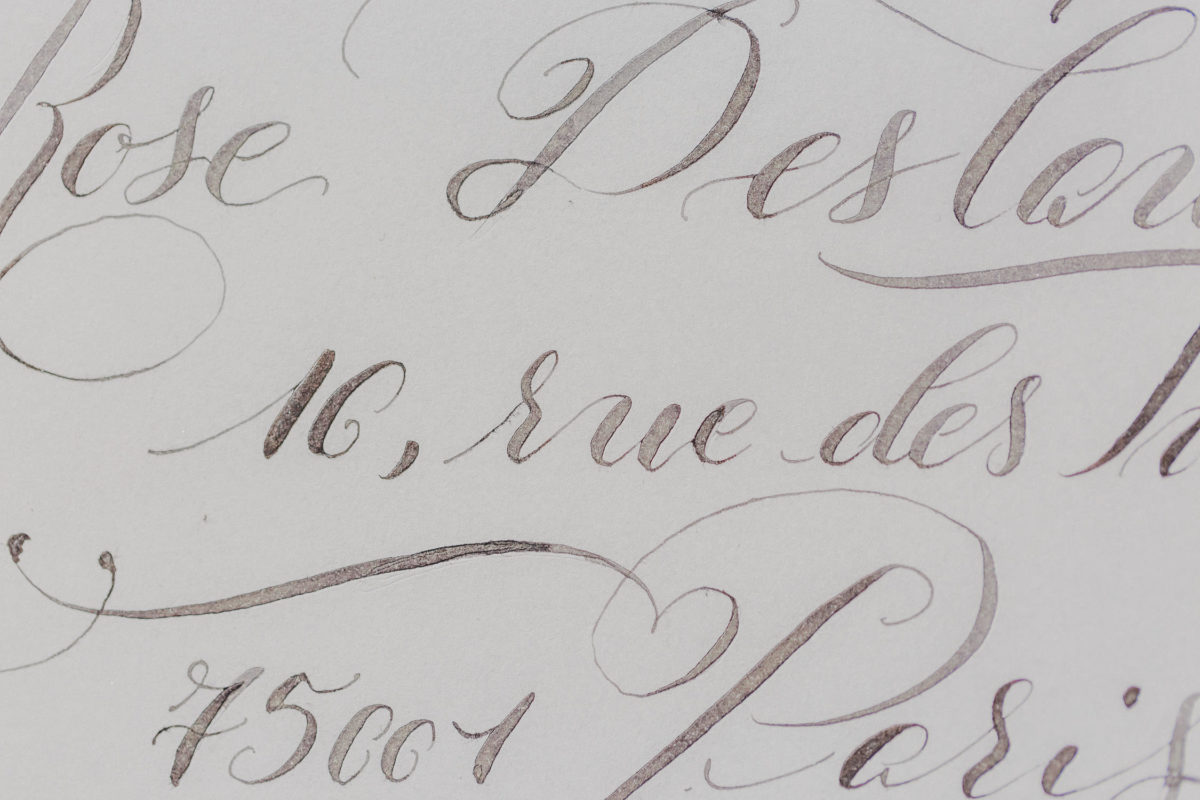 Rose Deslau
16, rue des
75001 Paris